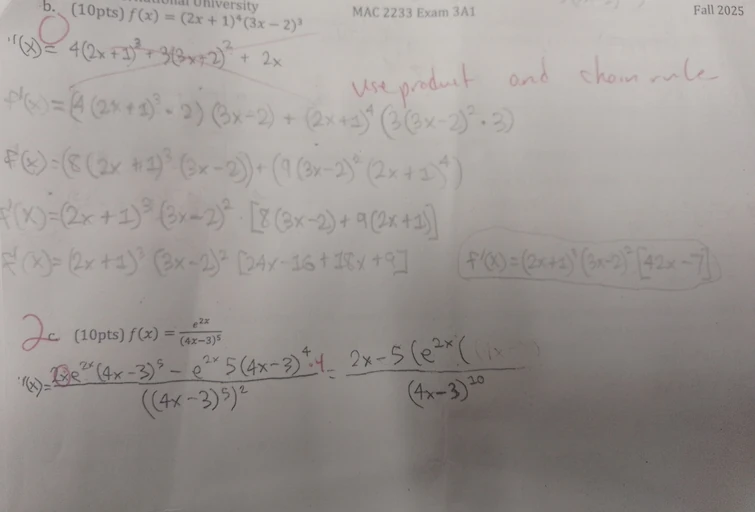 University MAC 2233 Exam 3A1 Fall 2025
b. (10pts) f(x) = (2x + 1)⁴(3x − 2)³
'(x) = 4(2x+1)³ + 3(3x-2)² + 2x
Use product and chain rule
f'(x) = (4(2x+1)³ · 2)(3x-2) + (2x+1)⁴(3(3x-2)² · 3)
f'(x) = (8(2x+1)³(3x-2)) + (9(3x-2)²(2x+1)⁴)
f'(x) = (2x+1)³(3x-2)² · [8(3x-2) + 9(2x+1)]
f'(x) = (2x+1)³(3x-2)² [24x-16+18x+9] f'(x) = (2x+1)³(3x-2)² [42x-7]
2c (10pts) f(x) = e²ˣ / (4x−3)⁵
'(x) = e²ˣ(4x-3)⁵ - e²ˣ 5(4x-3)⁴ · 4 / ((4x-3)⁵)² = 2x-5(e²ˣ( / (4x-3)¹⁰